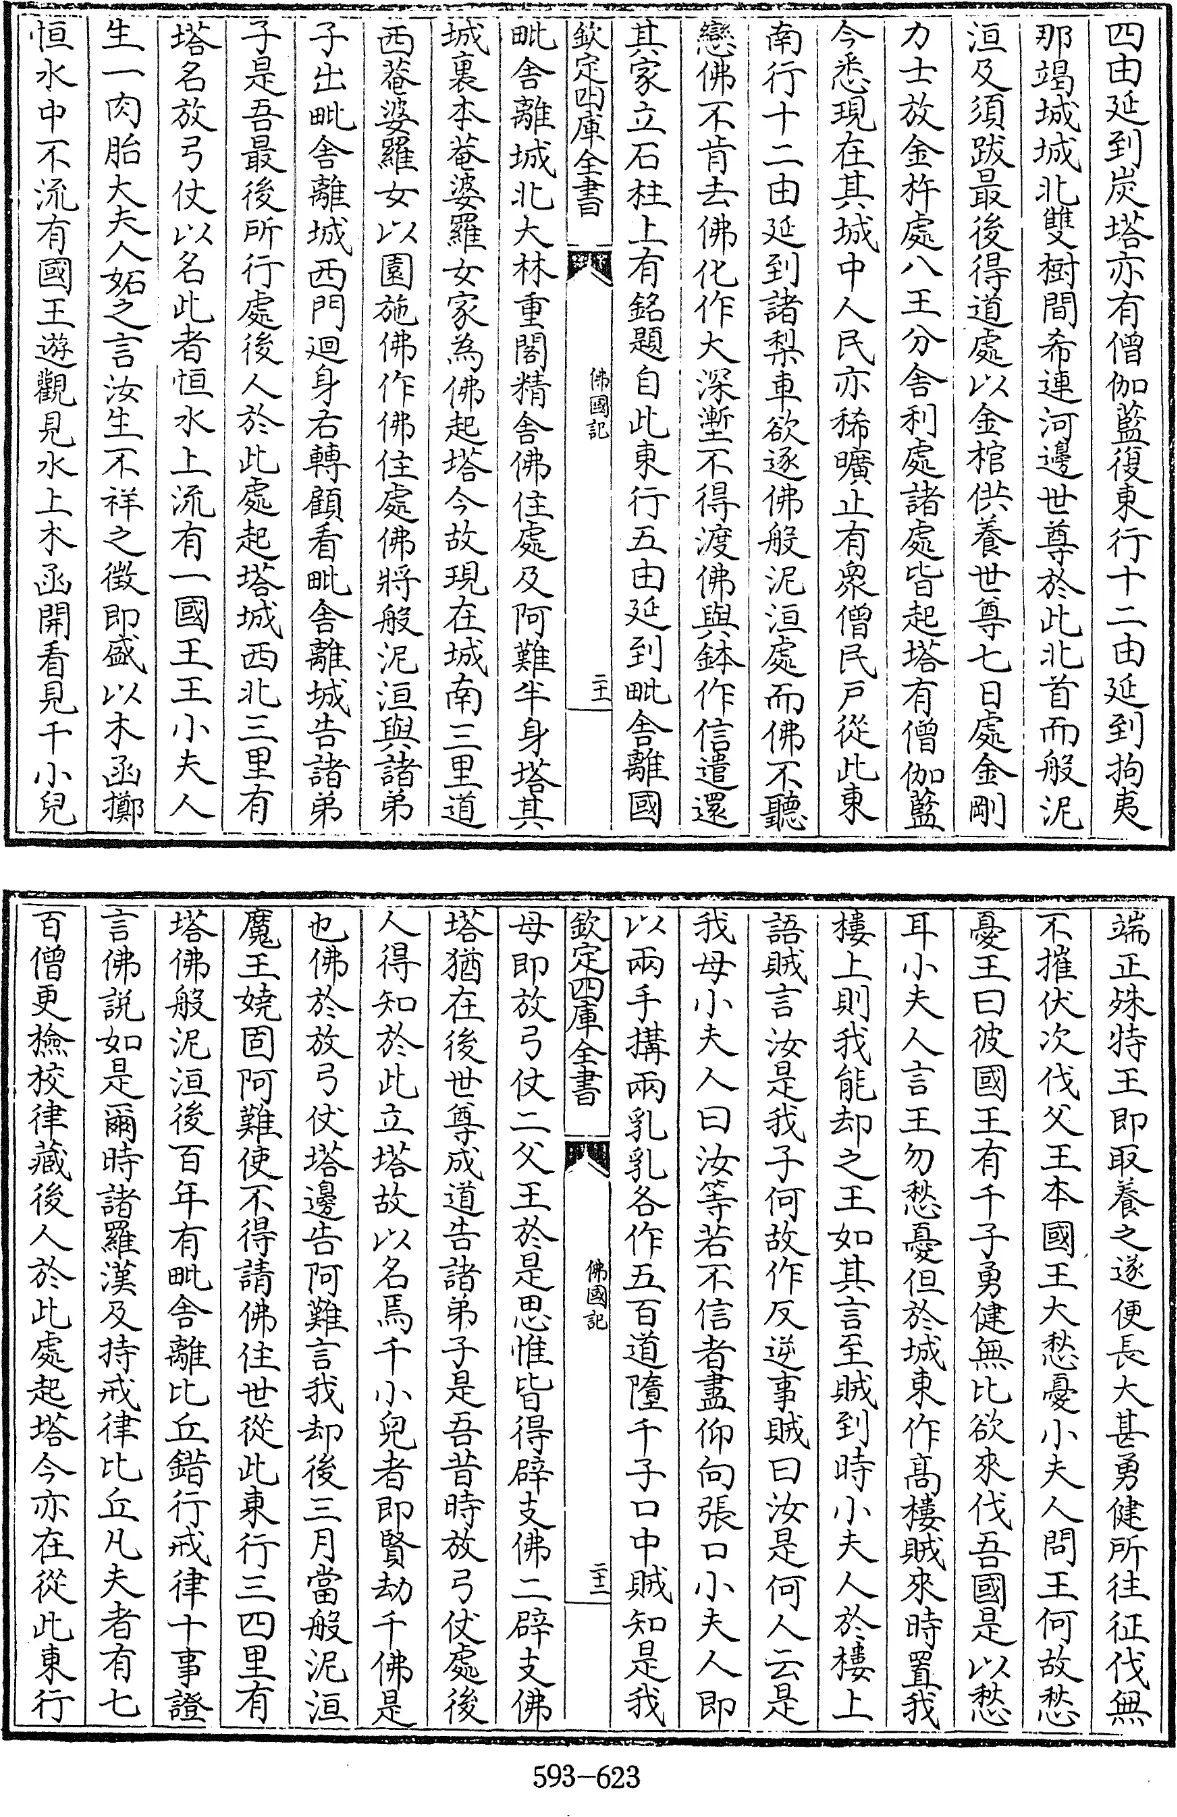 四由延到炭塔亦有僧伽藍復東行十二由延到拘夷
那竭城城北雙樹間希連河邊世尊於此北首而般泥
洹及須跋最後得道處以金棺供養世尊七日處金剛
力士放金杵處八王分舍利處諸處皆起塔有僧伽藍
今悉現在其城中人民亦稀曠止有衆僧民戶從此東
南行十二由延到諸梨車欲逐佛般泥洹處而佛不聽
戀佛不肯去佛化作大深壍不得渡佛與鉢作信遣還
其家立石柱上有銘題自此東行五由延到毗舍離國
欽定四庫全書 佛國記 二十一
毗舍離城北大林重閣精舍佛住處及阿難半身塔其
城裏本菴婆羅女家為佛起塔今故現在城南三里道
西菴婆羅女以園施佛作佛住處佛將般泥洹與諸弟
子出毗舍離城西門迴身右轉顧看毗舍離城告諸弟
子是吾最後所行處後人於此處起塔城西北三里有
塔名放弓仗以名此者恒水上流有一國王王小夫人
生一肉胎大夫人妬之言汝生不祥之徵即盛以木函擲
恒水中下流有國王遊觀見水上木函開看見千小兒
端正殊特王即取養之遂便長大甚勇健所往征伐無
不摧伏次伐父王本國王大愁憂小夫人問王何故愁
憂王曰彼國王有千子勇健無比欲來伐吾國是以愁
耳小夫人言王勿愁憂但於城東作髙樓賊來時置我
樓上則我能却之王如其言至賊到時小夫人於樓上
語賊言汝是我子何故作反逆事賊曰汝是何人云是
我母小夫人曰汝等若不信者盡仰向張口小夫人即
以兩手搆兩乳乳各作五百道墮千子口中賊知是我
欽定四庫全書 佛國記 二十二
母即放弓仗二父王於是思惟皆得辟支佛二辟支佛
塔猶在後世尊成道告諸弟子是吾昔時放弓仗處後
人得知於此立塔故以名焉千小兒者即賢劫千佛是
也佛於放弓仗塔邊告阿難言我却後三月當般泥洹
魔王嬈固阿難使不得請佛住世從此東行三四里有
塔佛般泥洹後百年有毗舍離比丘錯行戒律十事證
言佛說如是爾時諸羅漢及持戒律比丘凡夫者有七
百僧更檢校律藏後人於此處起塔今亦在從此東行
593-623